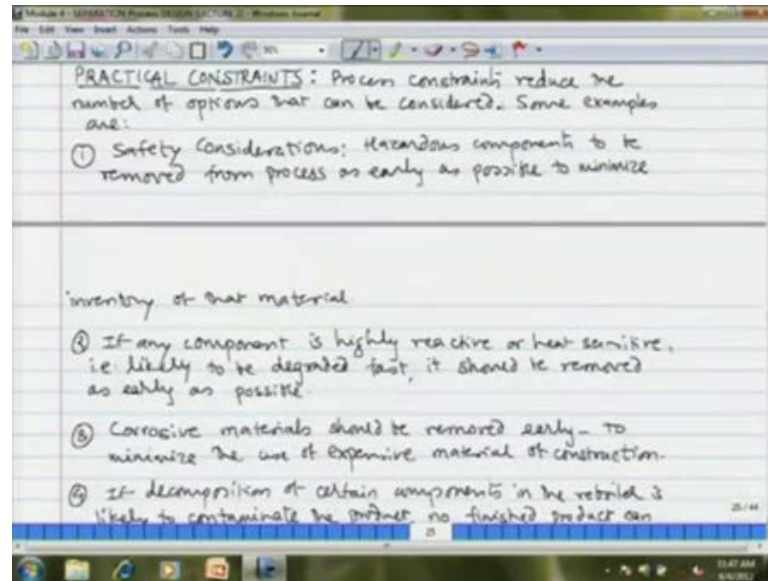 Module 4 - SEPARATION Process DESIGN (LECTURE 2) - Windows Journal
File Edit View Insert Actions Tools Help
PRACTICAL CONSTRAINTS: Process constraints reduce the
number of options that can be considered. Some examples
are:
① Safety Considerations: Hazardous components to be
removed from process as early as possible to minimize
inventory of that material
② If any component is highly reactive or heat sensitive,
i.e likely to be degraded fast, it should be removed
as early as possible.
③ Corrosive materials should be removed early - to
minimize the use of expensive material of construction.
④ If decomposition of certain components in the reboiled is
likely to contaminate the product, no finished product can
25/44
25
11:47 AM
8/6/2012